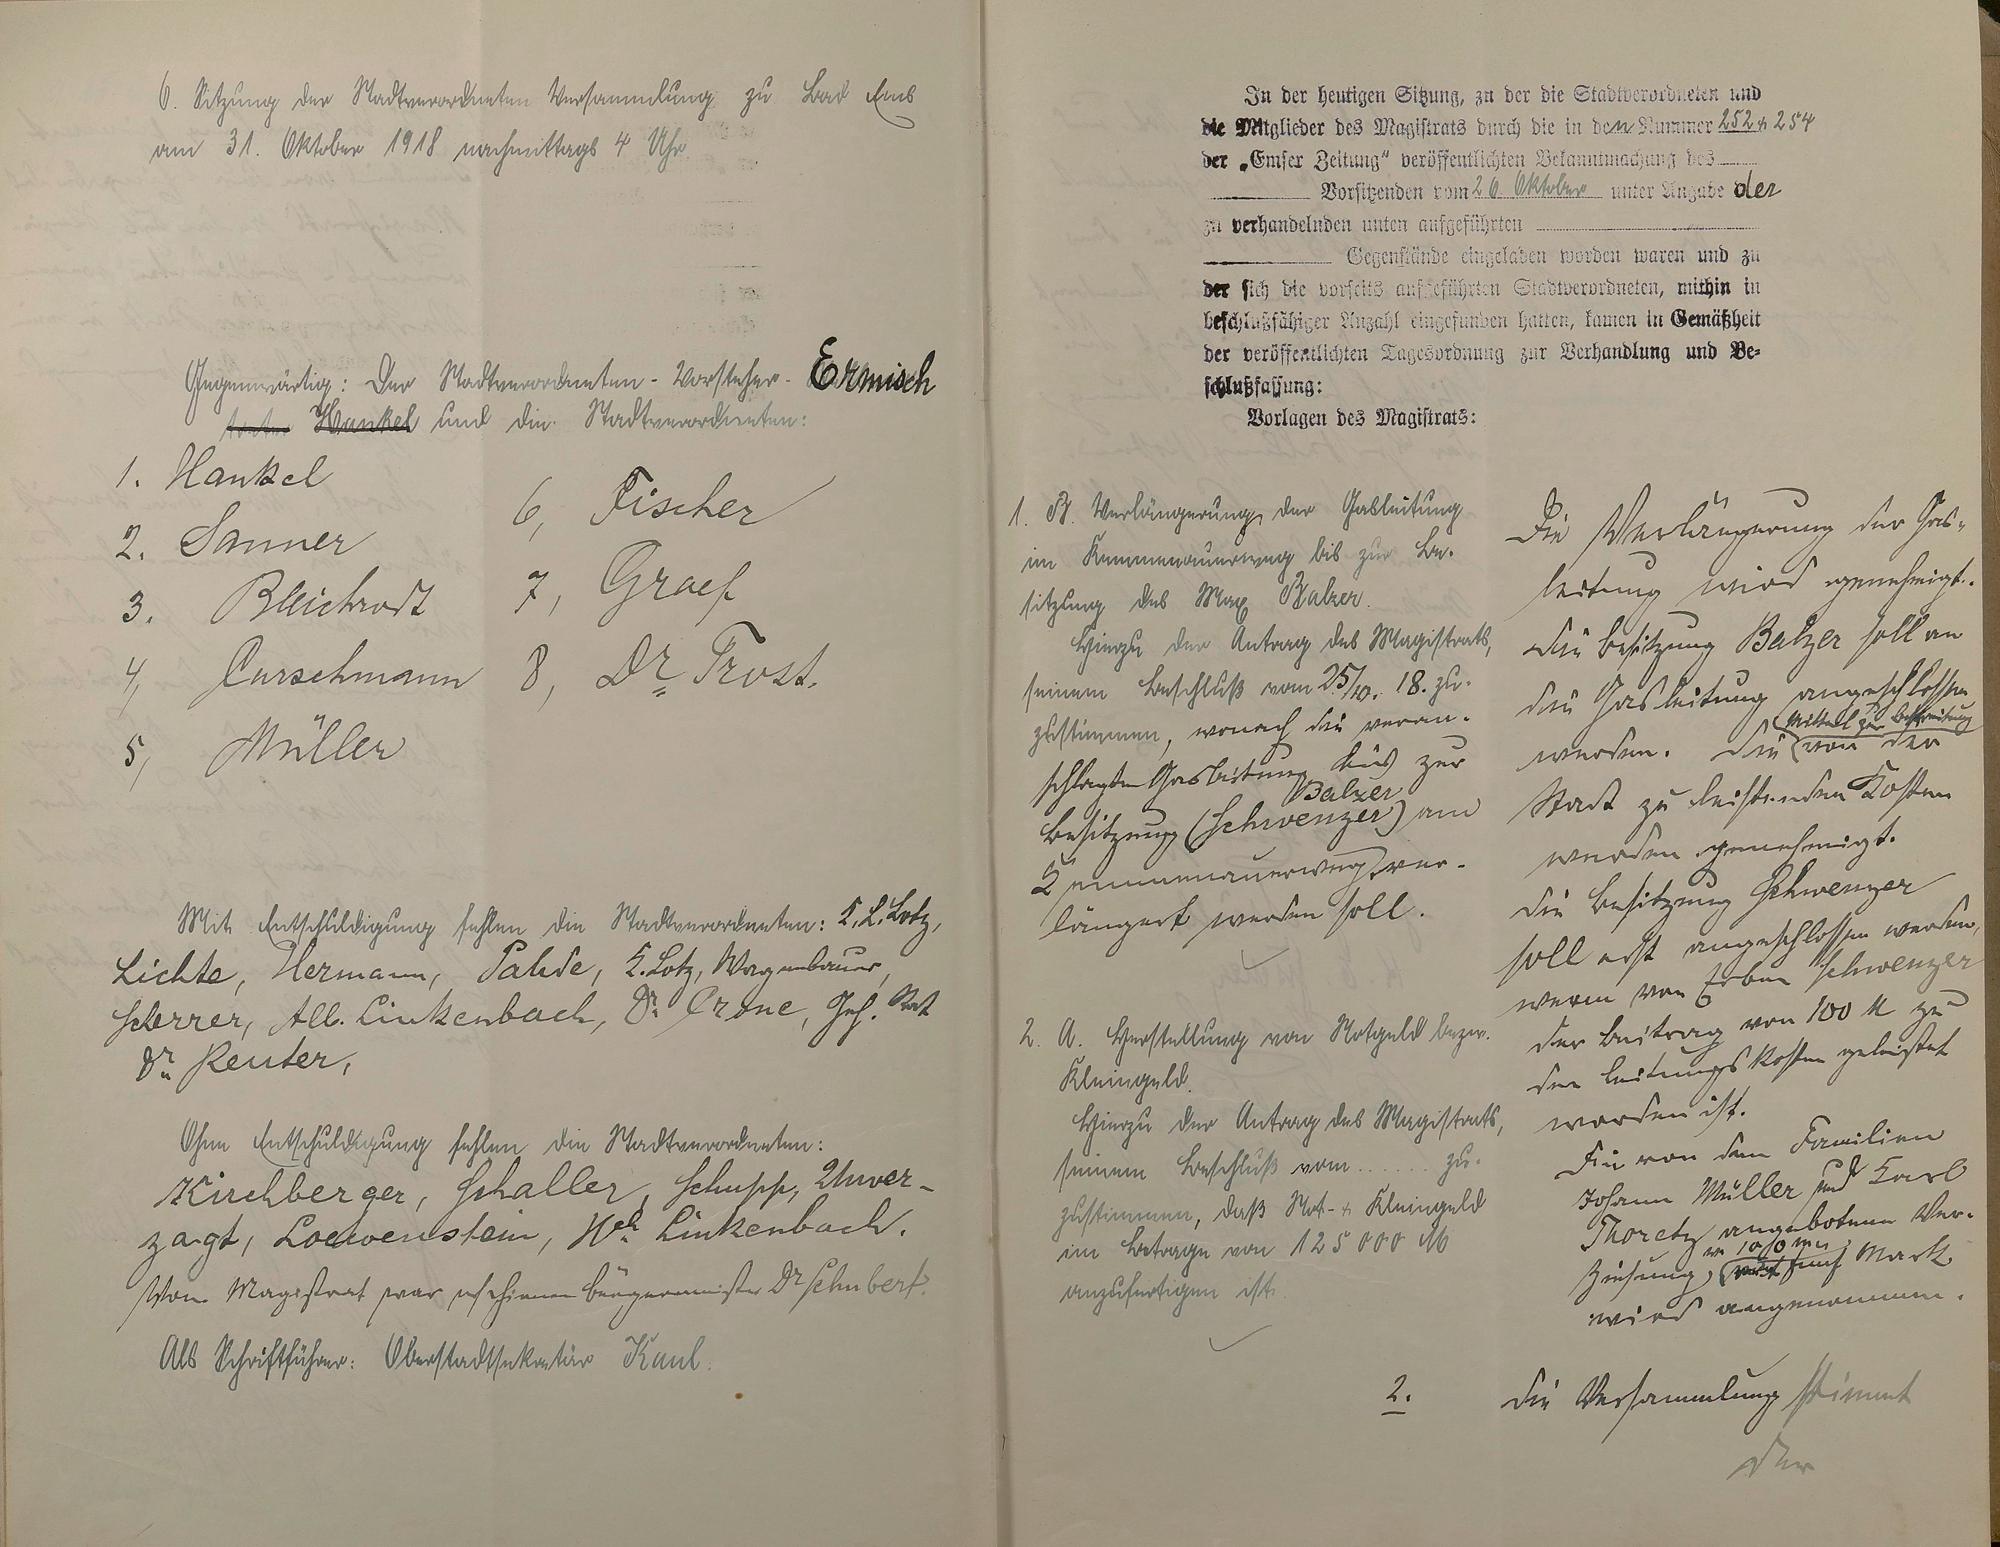 6. Sitzung der Stadtverordneten Versammlung zu Bad Ems
am 31. Oktober 1918 nachmittags 4 Uhr.
Gegenwärtig: Der Stadtverordneten-Vorsteher- Ermisch
Hankel und die Stadtverordneten:
1. Hankel
2. Sanner
3. Bleichrodt
4, Curschmann
5, Müller
6, Fischer
7, Graef
8, Dr. Trost.
Mit Entschuldigung fehlen die Stadtverordneten: K. L. Lotz,
Lichte, Hermann, Pahde, K. Lotz, Wagenbauer,
Scherrer, Alb. Linkenbach, Dr. Crone, Geh. Rat
Dr. Reuter,
Ohne Entschuldigung fehlen die Stadtverordneten:
Kirchberger, Schaller, Schupp, Unver-
zagt, Loewenstein, Wh. Linkenbach.
Vom Magistrat war erschienen Bürgermeister Dr Schubert.
Als Schriftführer: Oberstadtsekretär Kaul.
In der heutigen Sitzung, zu der die Stadtverordneten und
die Mitglieder des Magistrats durch die in den Nummer 252 + 254
der „Emser Zeitung“ veröffentlichten Bekanntmachung des
Vorsitzenden vom 26. Oktober unter Angabe der
zu verhandelnden unten aufgeführten
Gegenstände eingeladen worden waren und zu
der sich die vorseits aufgeführten Stadtverordneten, mithin in
beschlußfähiger Anzahl eingefunden hatten, kamen in Gemäßheit
der veröffentlichten Tagesordnung zur Verhandlung und Be-
schlußfassung:
Vorlagen des Magistrats:
1. B. Verlängerung der Gasleitung
im Kemmenauerweg bis zur Be-
sitzung des Max Balzer.
Hierzu der Antrag des Magistrats,
seinem Beschluß vom 25/10. 18. zu-
zustimmen, wonach die veran-
schlagte Gasleitung bis zur
Balzer
Besitzung (Schwenzer) am
Kemmenauerweg ver-
längert werden soll.
2. A. Herstellung von Notgeld bezw.
Kleingeld.
Hierzu der Antrag des Magistrats,
seinem Beschluß vom ....... zu-
zustimmen, daß Not- + Kleingeld
im Betrage von 125 000 M
anzufertigen ist.
Die Verlängerung der Gas-
leitung wird genehmigt.
Die Besitzung Balzer soll an
die Gasleitung angeschlossen
Mittel zur Bestreitung
werden. Die von der
Stadt zu leistenden Kosten
werden genehmigt.
Die Besitzung Schwenzer
soll erst angeschlossen werden,
wenn von Erben Schwenzer
der Beitrag von 100 M zu
den Leitungskosten geleistet
worden ist.
Die von den Familien
Johann Müller und Karl
Thoretz angebotene Ver-
zinsung, fünf Mark
wird angenommen.
2. Die Versammlung stimmt
der